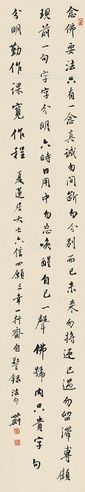 念佛要法只有一念真誠勿間斷勿分別而已未來勿將迎已過勿留滯專顧
現前一句字字分明六時日用中勿忘喚醒自己一聲佛號內只貴字句
分明勤作課寬作程夏蓮居大士六信四願三章一行齋自警錄法句